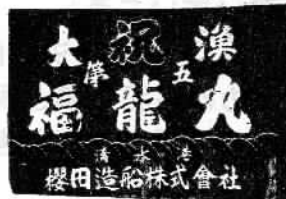 大祝漁
第五
福龍丸
清水港
櫻田造船株式會社